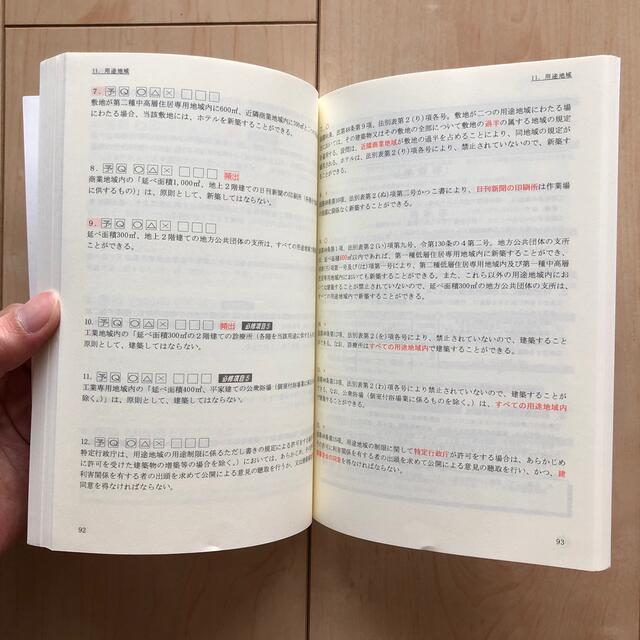 11. 用途地域
7. 予 Q ○△× □□□
敷地が第二種中高層住居専用地域内に600㎡、近隣商業地域内に700㎡と二つの
にわたる場合、当該敷地には、ホテルを新築することができる。
8. 予 Q ○△× □□□ 頻出
商業地域内の「延べ面積1,000㎡、地上2階建ての日刊新聞の印刷所(各階を
に供するもの)」は、原則として、新築してはならない。
9. 予 Q ○△× □□□
延べ面積300㎡、地上2階建ての地方公共団体の支所は、すべての用途地域
ることができる。
10. 予 Q ○△× □□□ 頻出 必修項目5
工業地域内の「延べ面積300㎡の2階建ての診療所(各階を当該用途に供する
原則として、建築してはならない。
11. 予 Q ○△× □□□ 必修項目5
工業専用地域内の「延べ面積400㎡、平家建ての公衆浴場(個室付浴場業に
除く。)」は、原則として、建築してはならない。
12. 予 Q ○△× □□□
特定行政庁は、用途地域の用途制限に係るただし書きの規定による許可をする
に許可を受けた建築物の増築等の場合を除く。)においては、あらかじめ、その
利害関係を有する者の出頭を求めて公開による意見の聴取を行うか、又は建
同意を得なければならない。
92
11. 用途地域
法第48条第9項、法別表第2(り)項各号。敷地が二つの用途地域にわたる場
おいては、その建築物又はその敷地の全部について敷地の過半の属する地域の規定
される。設問は、近隣商業地域が敷地の過半を占めることにより、同地域の規定が
れる。ホテルは、法別表第2(り)項各号により、禁止されていないので、新築す
ができる。
法第48条第10項、法別表第2(ぬ)項第二号かっこ書により、日刊新聞の印刷所は作業場
に関係なく新築することができる。
法第48条第1項、法別表第2(い)項第九号、令第130条の4第二号。地方公共団体の支所
延べ面積600㎡以内であれば、第一種低層住居専用地域内に新築することができ、
項第一号及び(は)項第一号により、第二種低層住居専用地域内及び第一種中高層
専用地域内においても新築することができる。また、これら以外の用途地域内にお
も、法別表第2の各号により、禁止されていないので、延べ面積300㎡の支所は、
すべての用途地域内に新築することができる。
法第48条第12項、法別表第2(を)項各号により、禁止されていないので、建築するこ
とができる。なお、診療所はすべての用途地域内で建築することができる。
法第48条第13項、法別表第2(わ)項各号により禁止されていないので、建築すること
ができる。なお、公衆浴場(個室付浴場業に係るものを除く。)は、すべての用途地域内
で建築することができる。
法第48条第15項。用途地域の制限に関して特定行政庁が許可をする場合は、あらかじめ
利害関係を有する者の出頭を求めて公開による意見の聴取を行い、かつ、建
築審査会の同意を得なければならない。
93